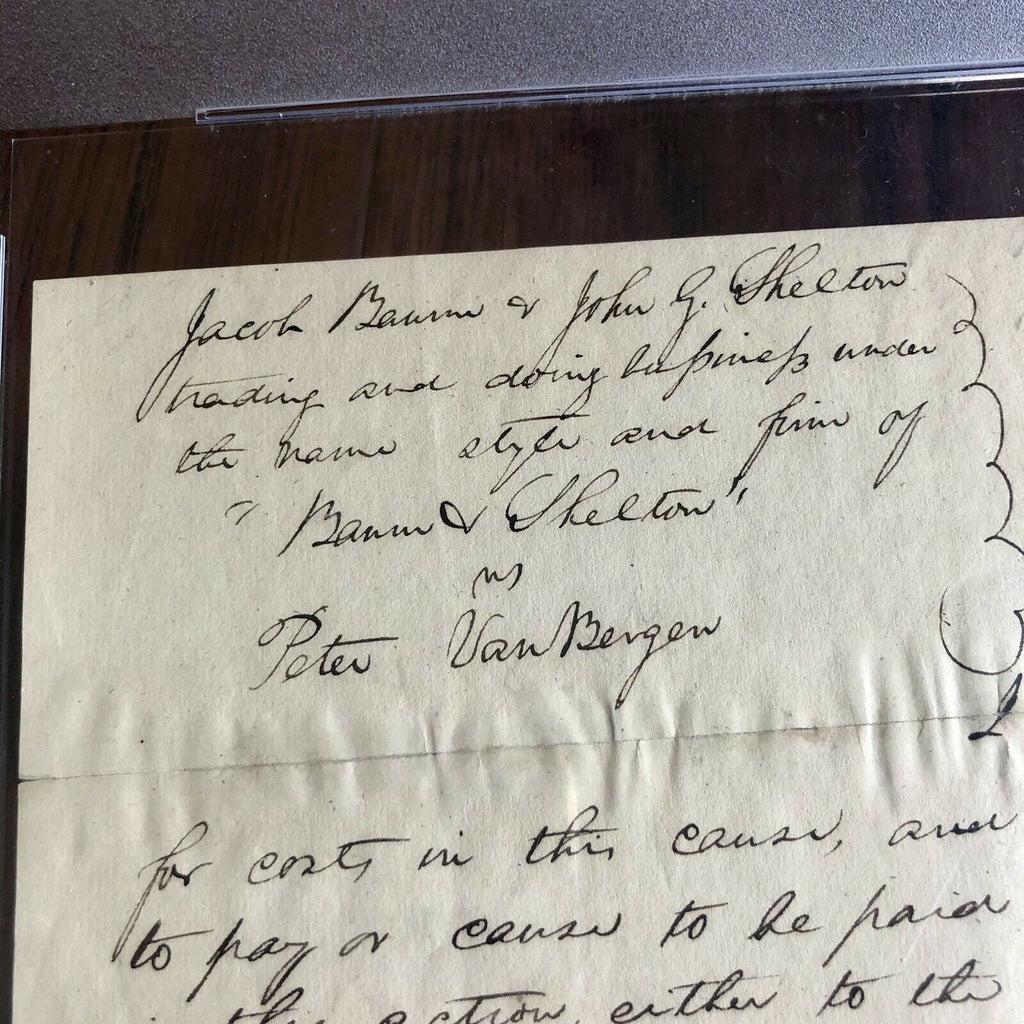 Jacob Baum & John G. Shelton
trading and doing business under
the name style and firm of
"Baum & Shelton"
vs
Peter Van Bergen
for costs in this cause, and
to pay or cause to be paid
in this action, either to the